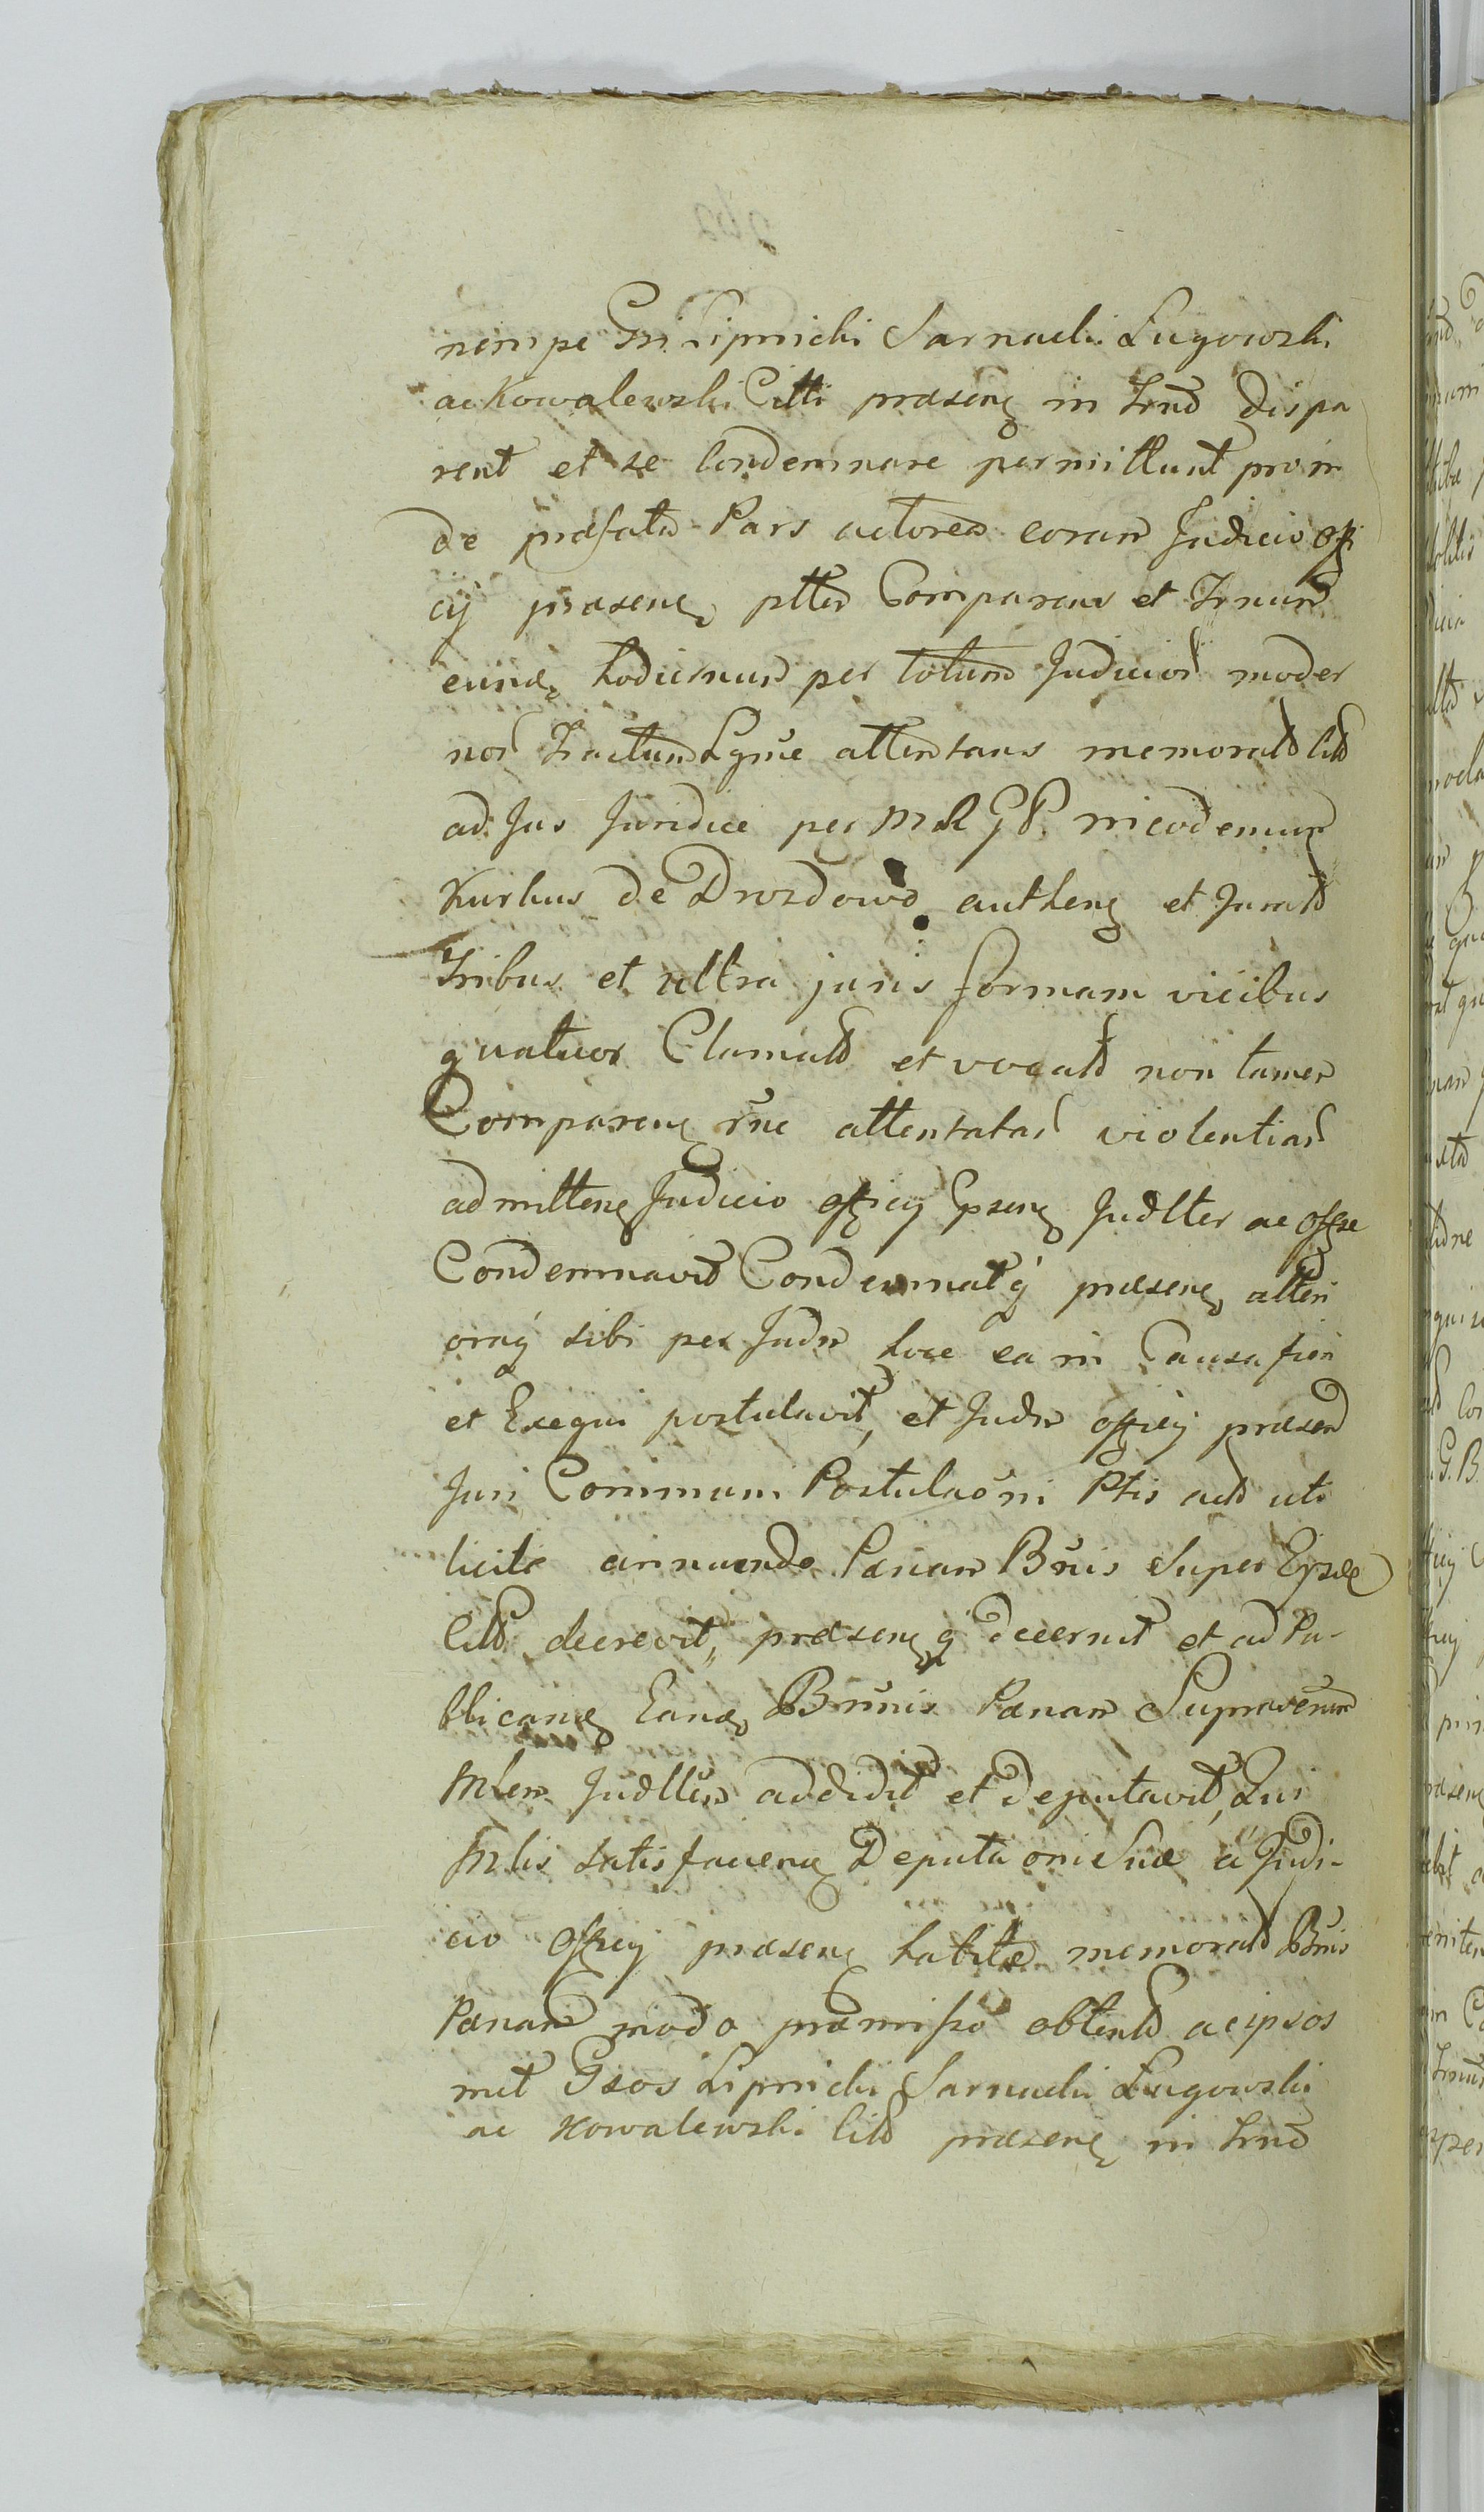 nempe Gsi Lipnicki Sarnacki Ługowski
ac Kowalewski Citti præsenę in Trnō dispa
rent et se Condemnare permittunt proin
de præfata Pars actorea coram Judicio offi
cÿ præsenę ptter Comparens et Trnum
eundę hodiernum per totum Judicior moder
nor Tractum Lgme attentans memoratos Cittos
ad Jus Juridice per M R G P. Nicodemum
Kurkus de Drozdowo authenę et Juratō
Tribus et ultra juris formam vicibus
quatuor Clamatos et vocatos non tamen
Comparenę rne attentatar violentiar
admittenę Judicio officÿ Epsenę Judlter ac offse
Condemnavit Condemnatq præsenę alteri
oraq sibi per Judm hoce ea in Causa fieri
et Exequi postulavit, et Judm officÿ præsen
Juri Communi Postulaõni Ptis act uti
licite annuendo Pænam Bnis super Epsde
Cittos decrevit, præsenęq decernit et ad Pu-
blicandę Eandę Bnnis Pænam Supravenum
Mlem Judllem addidit et Deputavit, Qui
Mlis satisfacienę Deputaoni Suæ a Judi-
cio Officÿ præsenę habitæ memoratā Bnis
Pænam modo præmisso obtentā ac ipsos
met Gsos Lipnicki Sarnacki Ługowski
ac Kowalewski Cittos præsenę in Trnō